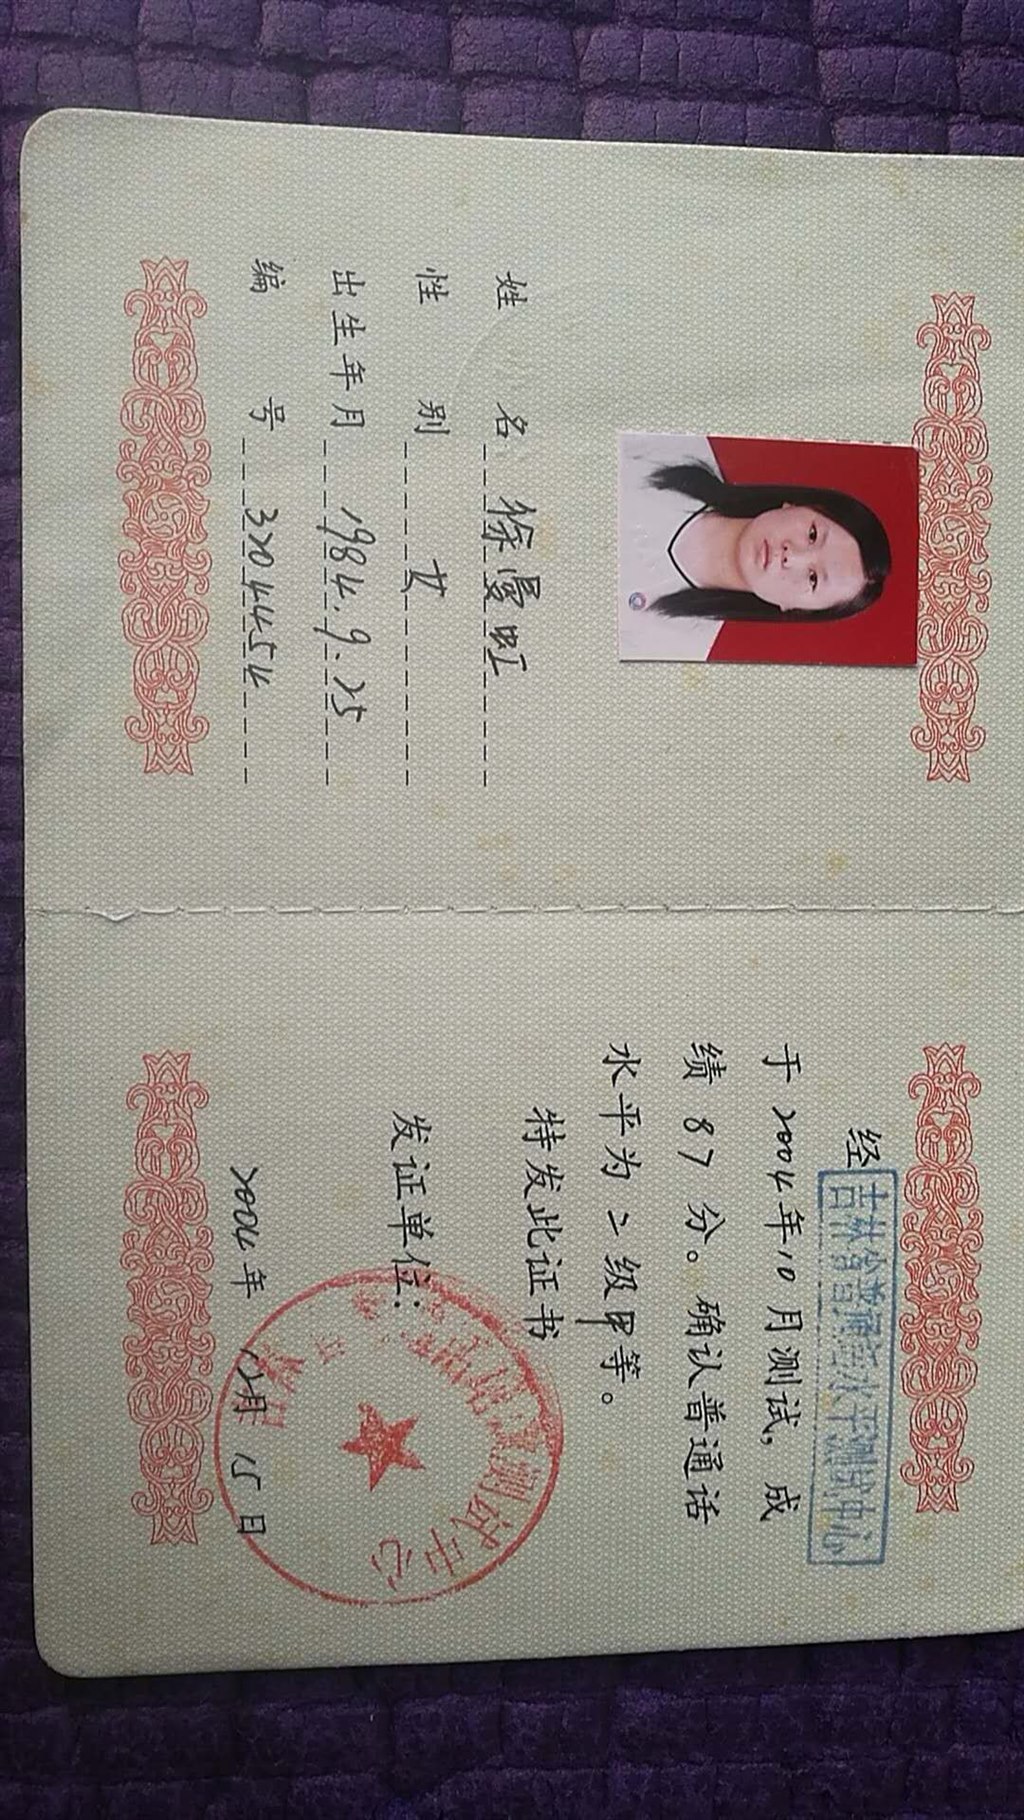 姓名 徐曼虹
性别 女
出生年月 1984.9.25
编号 3204454
经吉林省普通话水平测试中心
于2004年10月测试,成
绩 87 分。确认普通话
水平为二级甲等。
特发此证书
发证单位:
测试中心
2004年 12月 15日